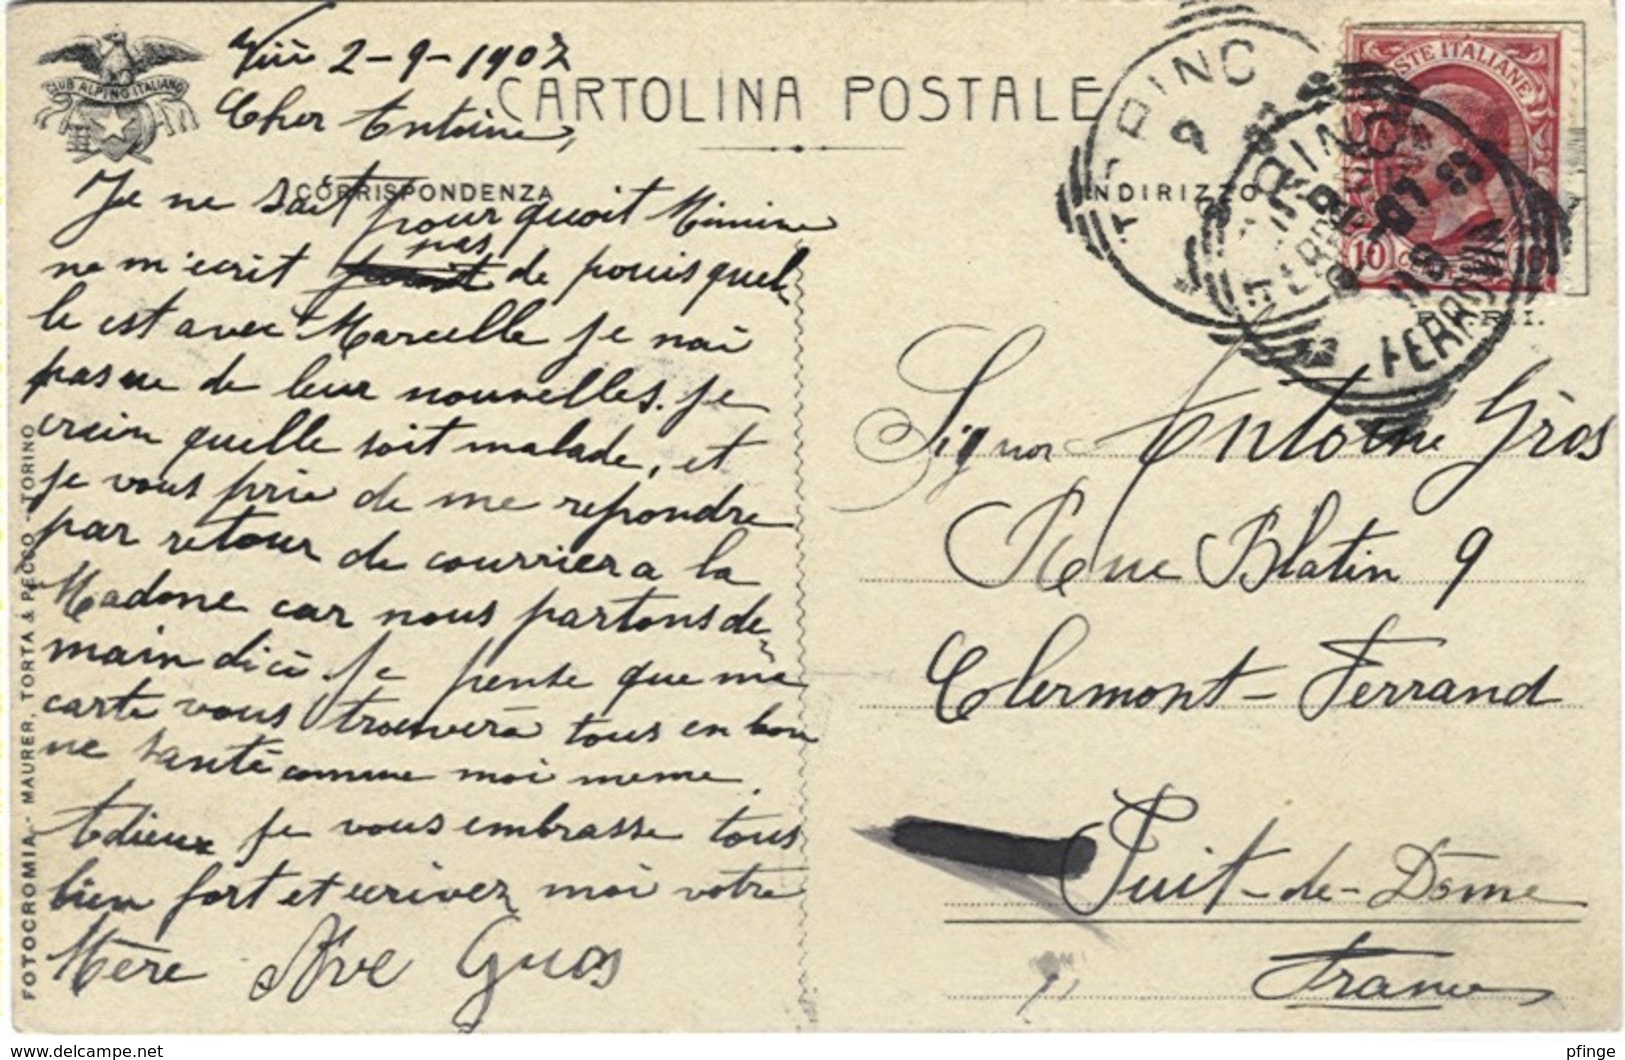 CLUB ALPINO ITALIANO
Viù 2-9-1907
CARTOLINA POSTALE
Cher Antoine,
CORRISPONDENZA
Je ne sait pourquoit Mimine
ne m'ecrit pas de pouis quel
le est avec Marcelle je nai
pas ue de leur nouvelles. Je
crain quelle soit malade, et
je vous prie de me repondre
par retour de courrier a la
Madone car nous partons de
main dici Je pense que ma
carte vous trouverà tous en bon
ne santé comme moi meme.
Adieux je vous embrasse tous
bien fort et ecrivez moi votre
Mère Ave Gros
FOTOCROMIA - MAURER, TORTA & PECCO - TORINO
INDIRIZZO
POSTE ITALIANE
10
TORINO
FERROVIA
TORINO
FERROVIA
Signor Antoine Gros
Rue Blatin 9
Clermont-Ferrand
Puit-de-Dôme
France
delcampe.net
pfinge